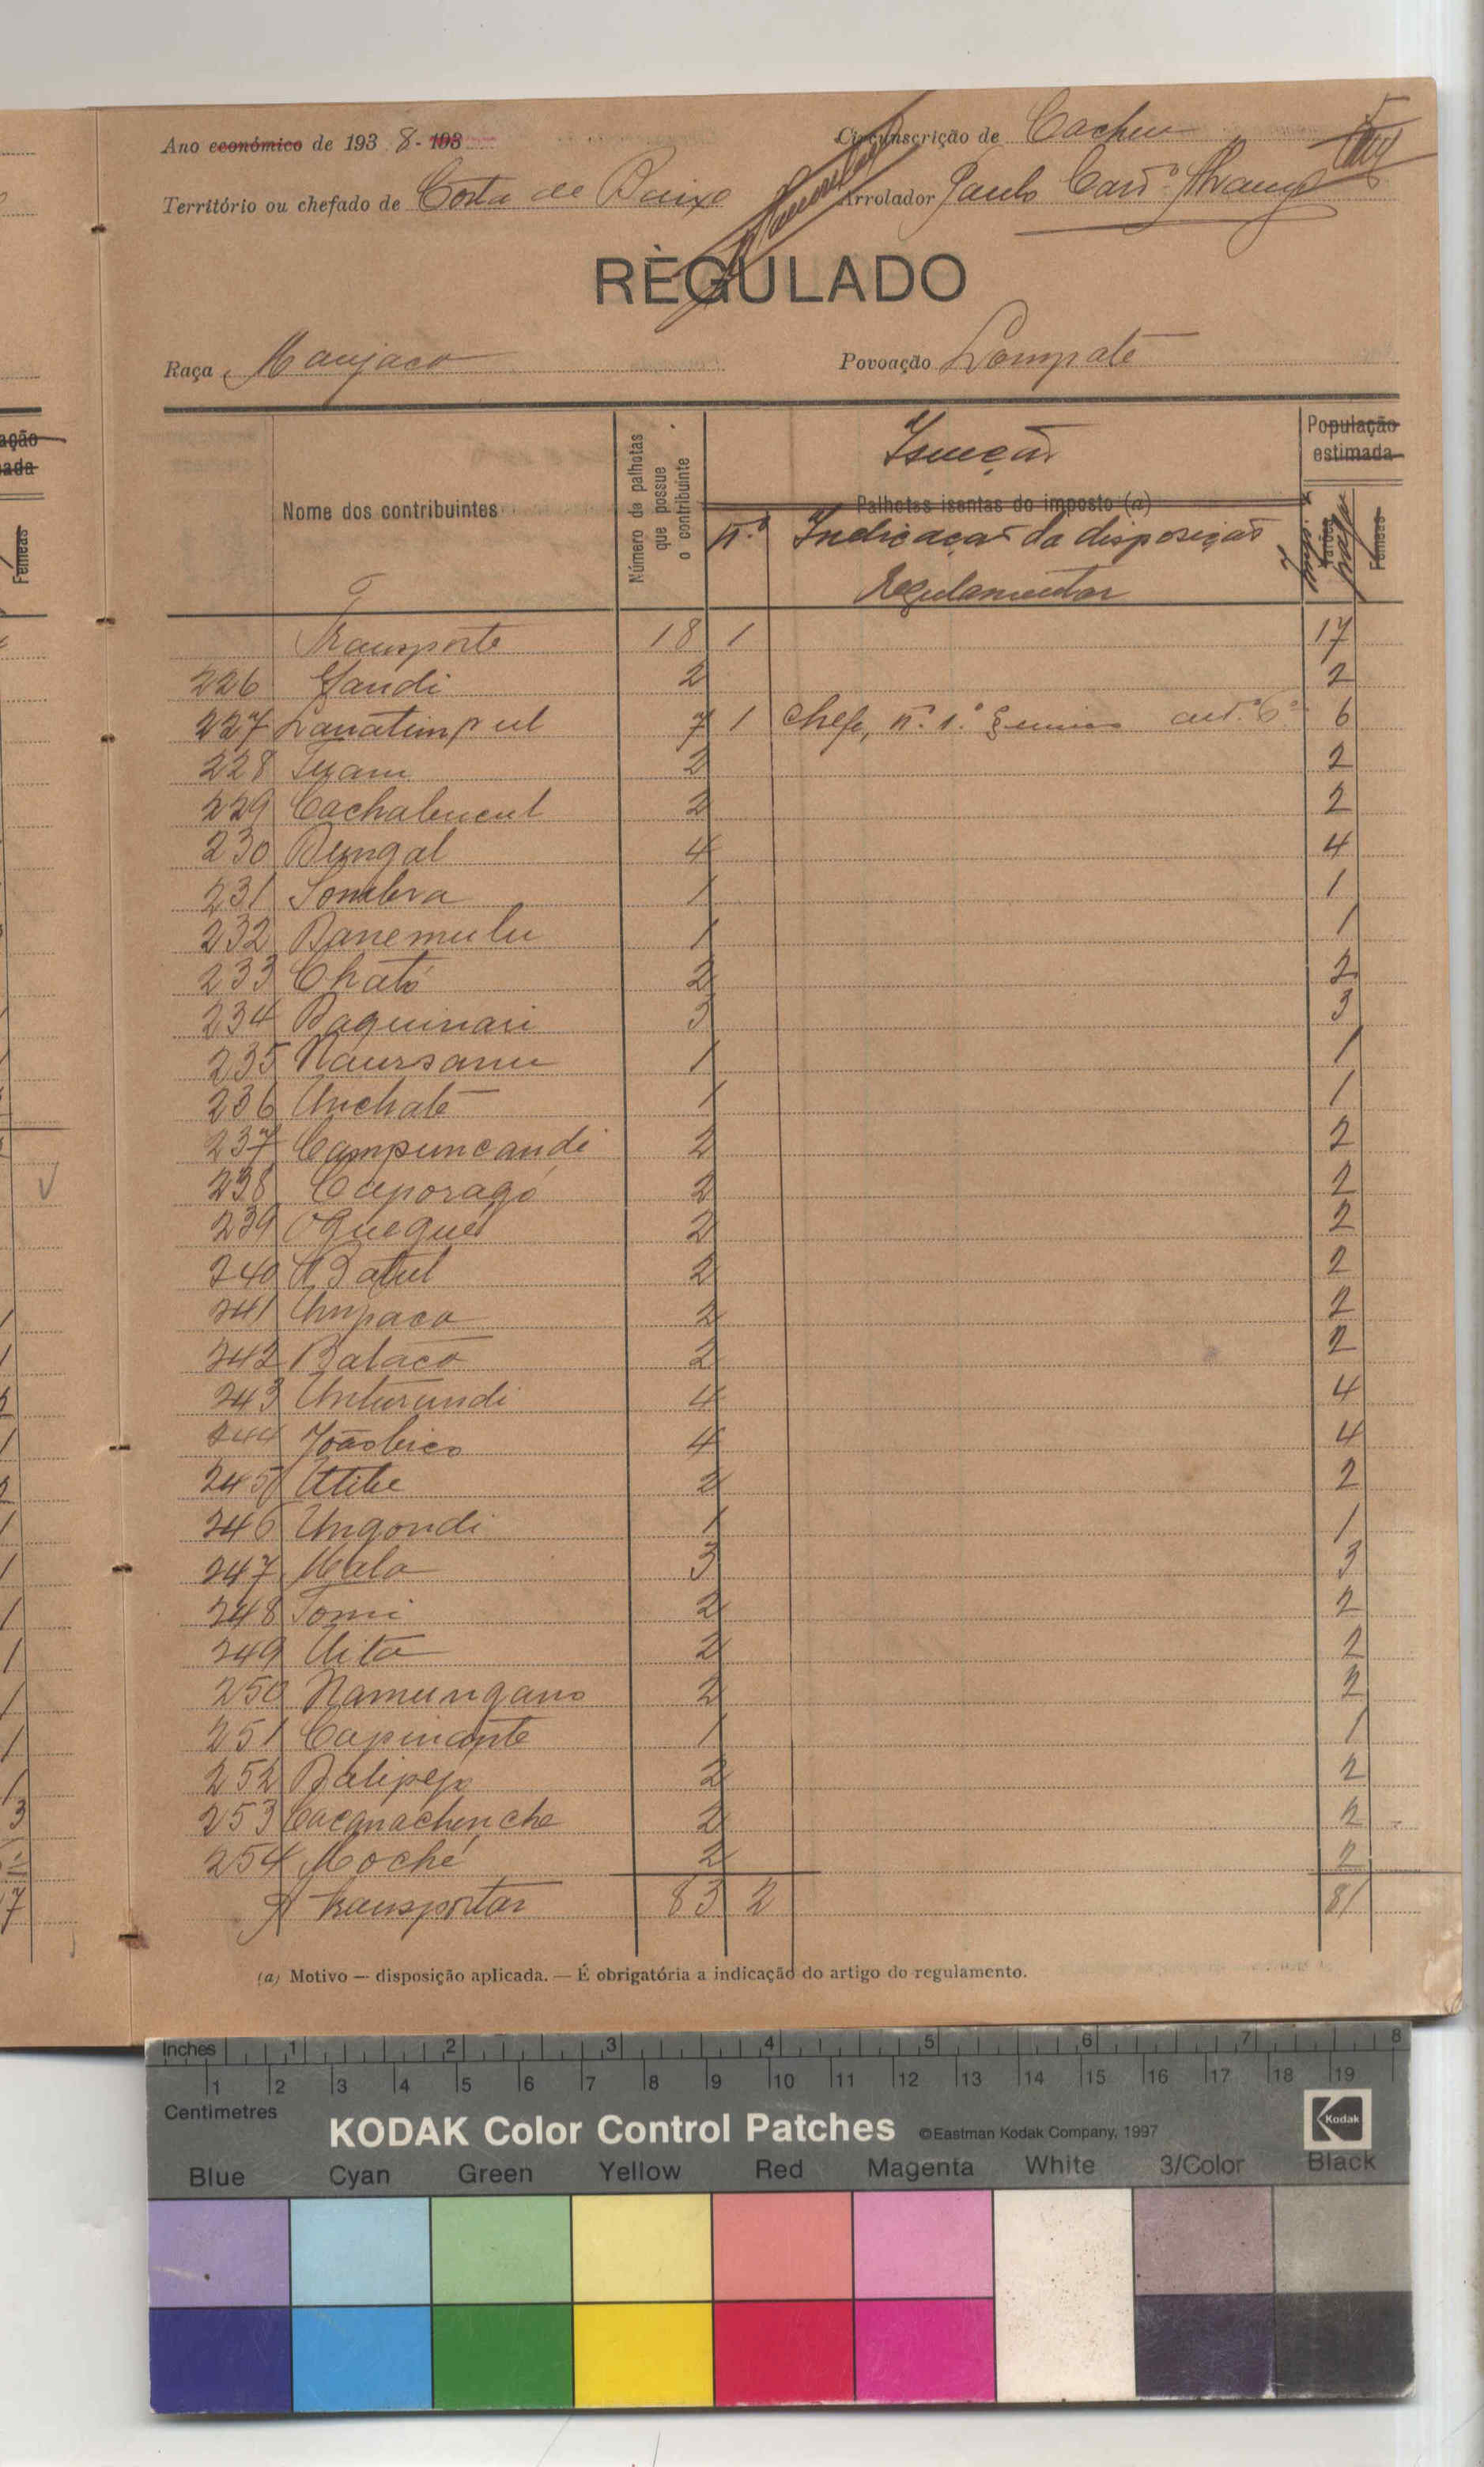 Ano económico de 193 8 - 193
Circunscrição de Cacheu
Território ou chefado de Costa de Baixo
Arrolador Paulo
REGULADO
Raça Manjaco
Povoação Lompate
Nome dos contribuintes
Número de palhotas que possue o contribuinte
Isenção
Palhotas isentas do imposto (a)
N.º Indicação da disposição
Regulamentar
População estimada
Varões
Fêmeas
Transporte 18 1 17
226 Gandi 2 2
227 Lanatimpul 7 1 Chefe, n.º 1.º § unico art.º 6.º 6
228 2 2
229 2 2
230 4 4
231 Sombra 1 1
232 Banemulu 1 1
233 Cható 2 2
234 Baquinari 3 3
235 1 1
236 Unchate 1 1
237 Campuncandi 2 2
238 Caporagó 2 2
239 2 2
240 2 2
241 Umpaca 2 2
242 Bataco 2 2
243 Unturundi 4 4
244 4 4
245 Utibe 2 2
246 Ungondi 1 1
247 3 3
248 Tomi 2 2
249 Uita 2 2
250 Namungano 2 2
251 1 1
252 2 2
253 2 2
254 Moché 2 2
A transportar 83 2 81
(a) Motivo — disposição aplicada. — É obrigatória a indicação do artigo do regulamento.
Inches 1 2 3 4 5 6 7 8
1 2 3 4 5 6 7 8 9 10 11 12 13 14 15 16 17 18 19
Centimetres
KODAK Color Control Patches ©Eastman Kodak Company, 1997 Kodak
Blue Cyan Green Yellow Red Magenta White 3/Color Black